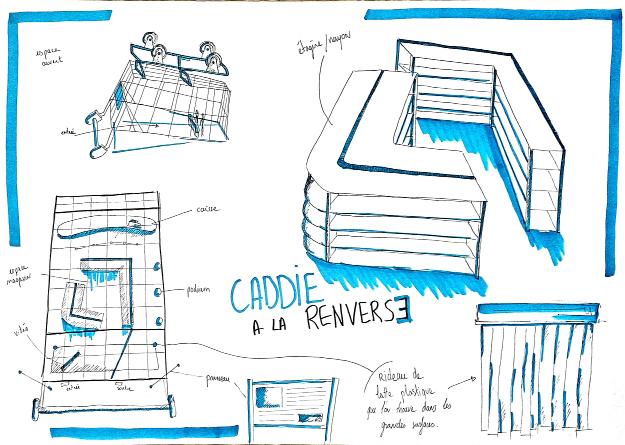 espace
ouvert
étagère / rayon
entrée
caisse
espace
magasin
podium
CADDIE
A LA RENVERSE
entrée
sortie
panneau
Rideau de
latte plastique
que l'on trouve dans les
grandes surfaces.